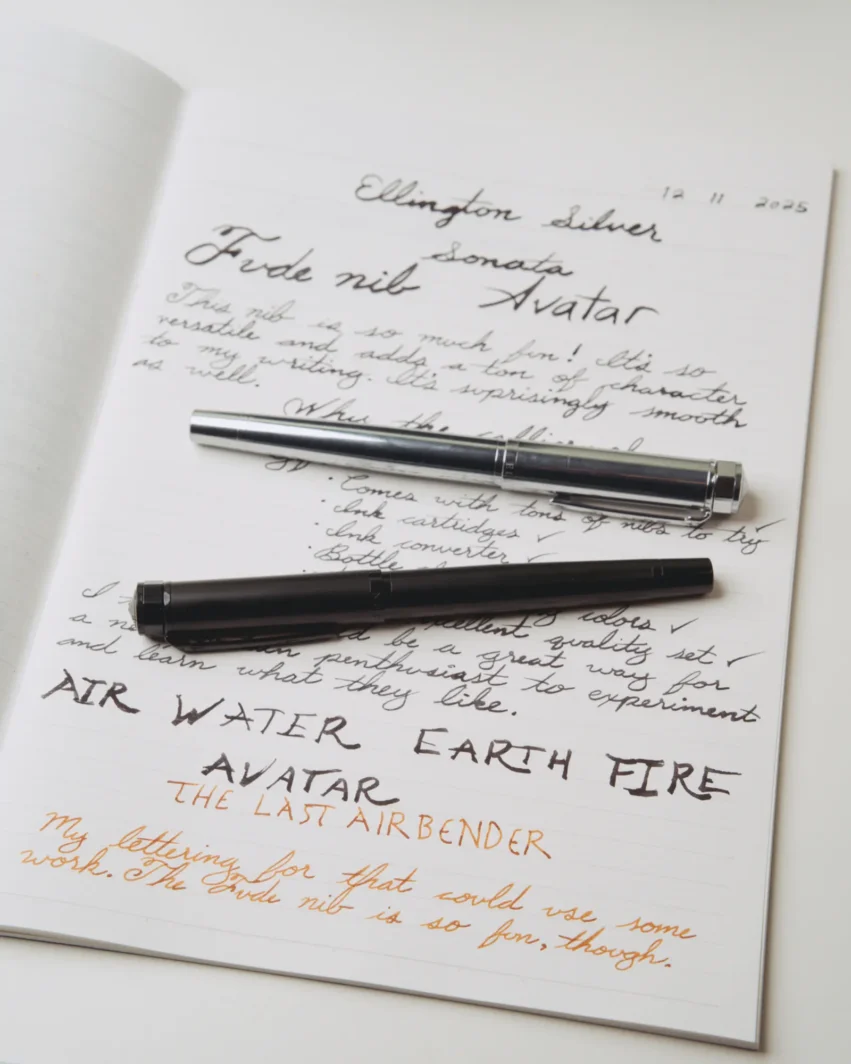 12 11 2025
Ellington Silver
Sonata
Fude nib Avatar
This nib is so much fun! It's so
versatile and adds a ton of character
to my writing. It's suprisingly smooth
as well.
the
• Comes with tons of nibs to try ✓
• Ink cartridges ✓
• Ink converter ✓
• Bottle
colors ✓
I excellent quality set ✓
a be a great way for
an penthusiast to experiment
and learn what they like.
AIR WATER EARTH FIRE
AVATAR
THE LAST AIRBENDER
My lettering for that could use some
work. The Fude nib is so fun, though.